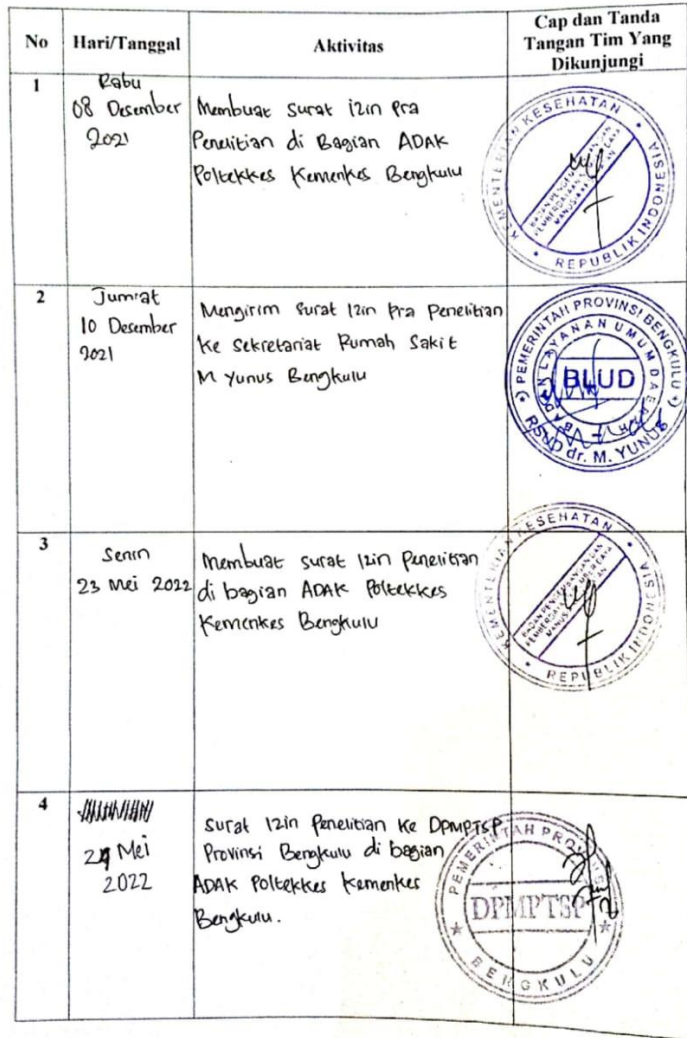 No Hari/Tanggal Aktivitas Cap dan Tanda
Tangan Tim Yang
Dikunjungi
1
Rabu
08 Desember
2021
Membuat surat izin pra
Penelitian di Bagian ADAK
Poltekkes Kemenkes Bengkulu
KEMENTERIAN KESEHATAN
REPUBLIK INDONESIA
BADAN PENGEMBANGAN DAN
PEMBERDAYAAN SUMBER DAYA
MANUSIA KESEHATAN
2
Jum'at
10 Desember
2021
Mengirim surat izin pra Penelitian
ke Sekretariat Rumah Sakit
M Yunus Bengkulu
PEMERINTAH PROVINSI BENGKULU
BADAN LAYANAN UMUM DAERAH
BLUD
RSUD dr. M. YUNUS
3
Senin
23 Mei 2022
Membuat surat izin penelitian
di bagian ADAK Poltekkes
Kemenkes Bengkulu
KEMENTERIAN KESEHATAN
REPUBLIK INDONESIA
BADAN PENGEMBANGAN DAN
PEMBERDAYAAN SUMBER DAYA
MANUSIA KESEHATAN
4
Mei
2022
Surat izin Penelitian ke DPMPTSP
Provinsi Bengkulu di bagian
ADAK Poltekkes Kemenkes
Bengkulu.
PEMERINTAH PROVINSI
DPMPTSP
BENGKULU